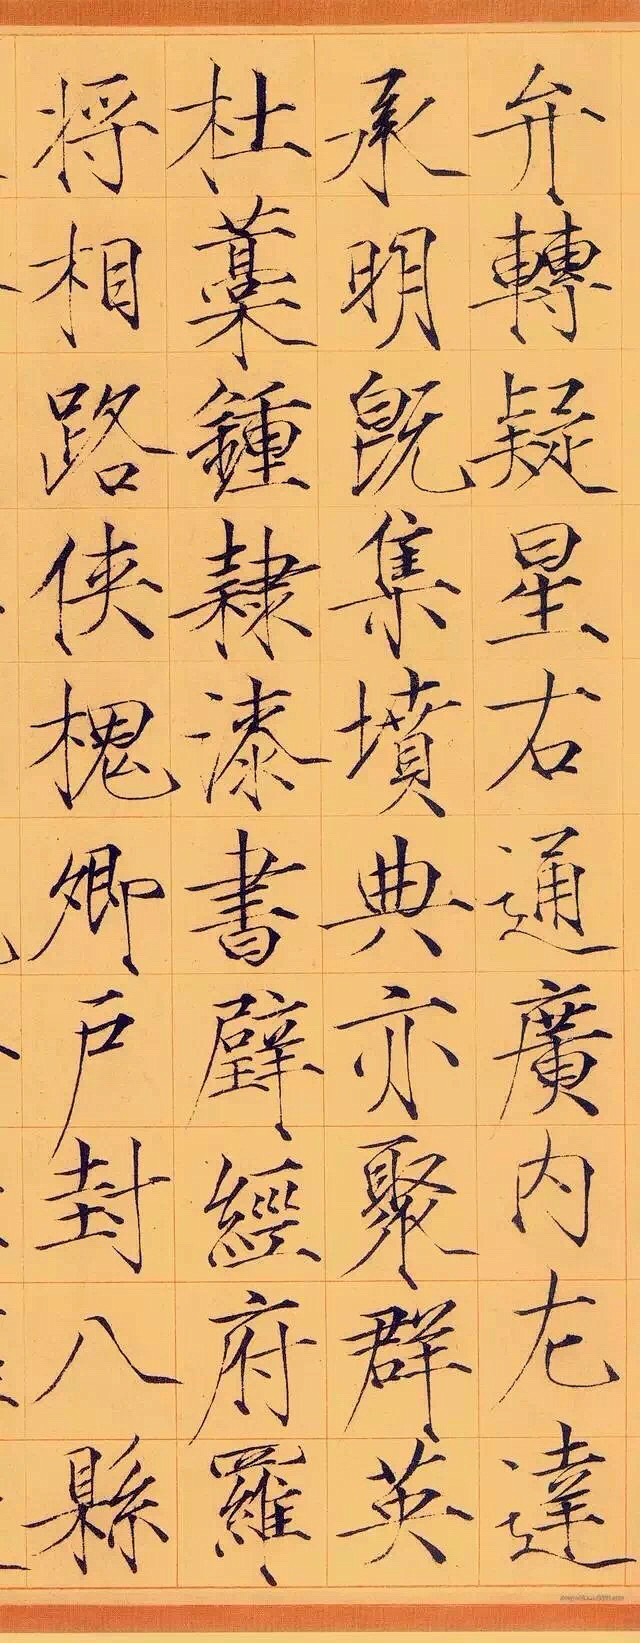 弁轉疑星右通廣内左達
承明既集墳典亦聚群英
杜藁鍾隸漆書壁經府羅
将相路俠槐卿戶封八縣